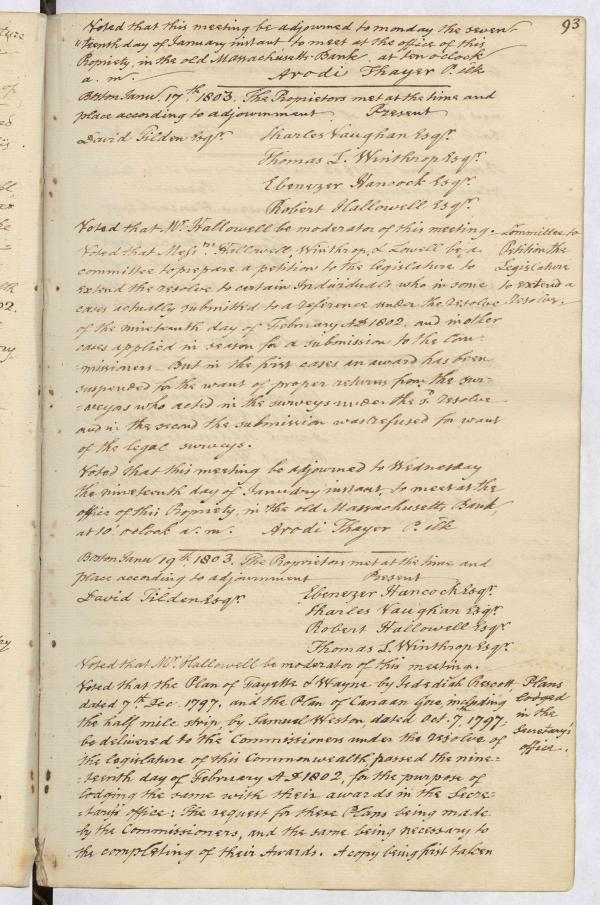 93
Voted that this meeting be adjourned to monday the seven-
"teenth day of January instant to meet at the office of this
Propriety, in the old Massachusetts Bank at ten o'clock
a. m. Arodi Thayer P. Clk
Boston Janu. 17th. 1803. The Proprietors met at the time and
place according to adjournment Present
David Tilden Esqr. Charles Vaughan Esqr.
Thomas L. Winthrop Esqr.
Ebenezer Hancock Esqr.
Robert Hallowell Esqr.
Voted that Mr. Hallowell be moderator of this meeting.
Voted that Messrs. Hallowell, Winthrop, & Lowell be a
committee to prepare a petition to the legislature to
extend the resolve to certain Individuals who in some
cases actually submitted to a reference under the resolve
of the nineteenth day of February AD 1802, and in other
cases applied in season for a submission to the Com-
missioners. But in the first cases an award has been
suspended for the want of proper returns from the sur-
-veyors who acted in the surveys under the sd. resolve
and in the second the submission was refused for want
of the legal surveys.
Committee to
Petition the
Legislature
to extend a
resolve.
Voted that this meeting be adjourned to Wednesday
the nineteenth day of January instant, to meet at the
office of this Propriety, in the old Massachusetts Bank
at 10 oclock a. m. Arodi Thayer P. Clk
Boston Janu. 19th. 1803. The Proprietors met at the time and
place according to adjournment Present
David Tilden Esqr. Ebenezer Hancock Esqr.
Charles Vaughan Esqr.
Robert Hallowell Esqr.
Thomas L. Winthrop Esqr.
Voted that Mr. Hallowell be moderator of this meeting.
Voted that the Plan of Fayette & Wayne by Jedediah Prescott,
dated 7th. Dec. 1797, and the Plan of Canaan Gore, including
the half mile strip, by Samuel Weston, dated Oct. 7th. 1797
be delivered to the Commissioners under the resolve of
the legislature of this Commonwealth passed the nine-
-teenth day of February AD 1802, for the purpose of
lodging the same with their awards in the Secre-
-tary's office: The request for these Plans being made
by the Commissioners, and the same being necessary to
the completing of their Awards. A copy being first taken
Plans
lodged
in the
Secretary's
office.